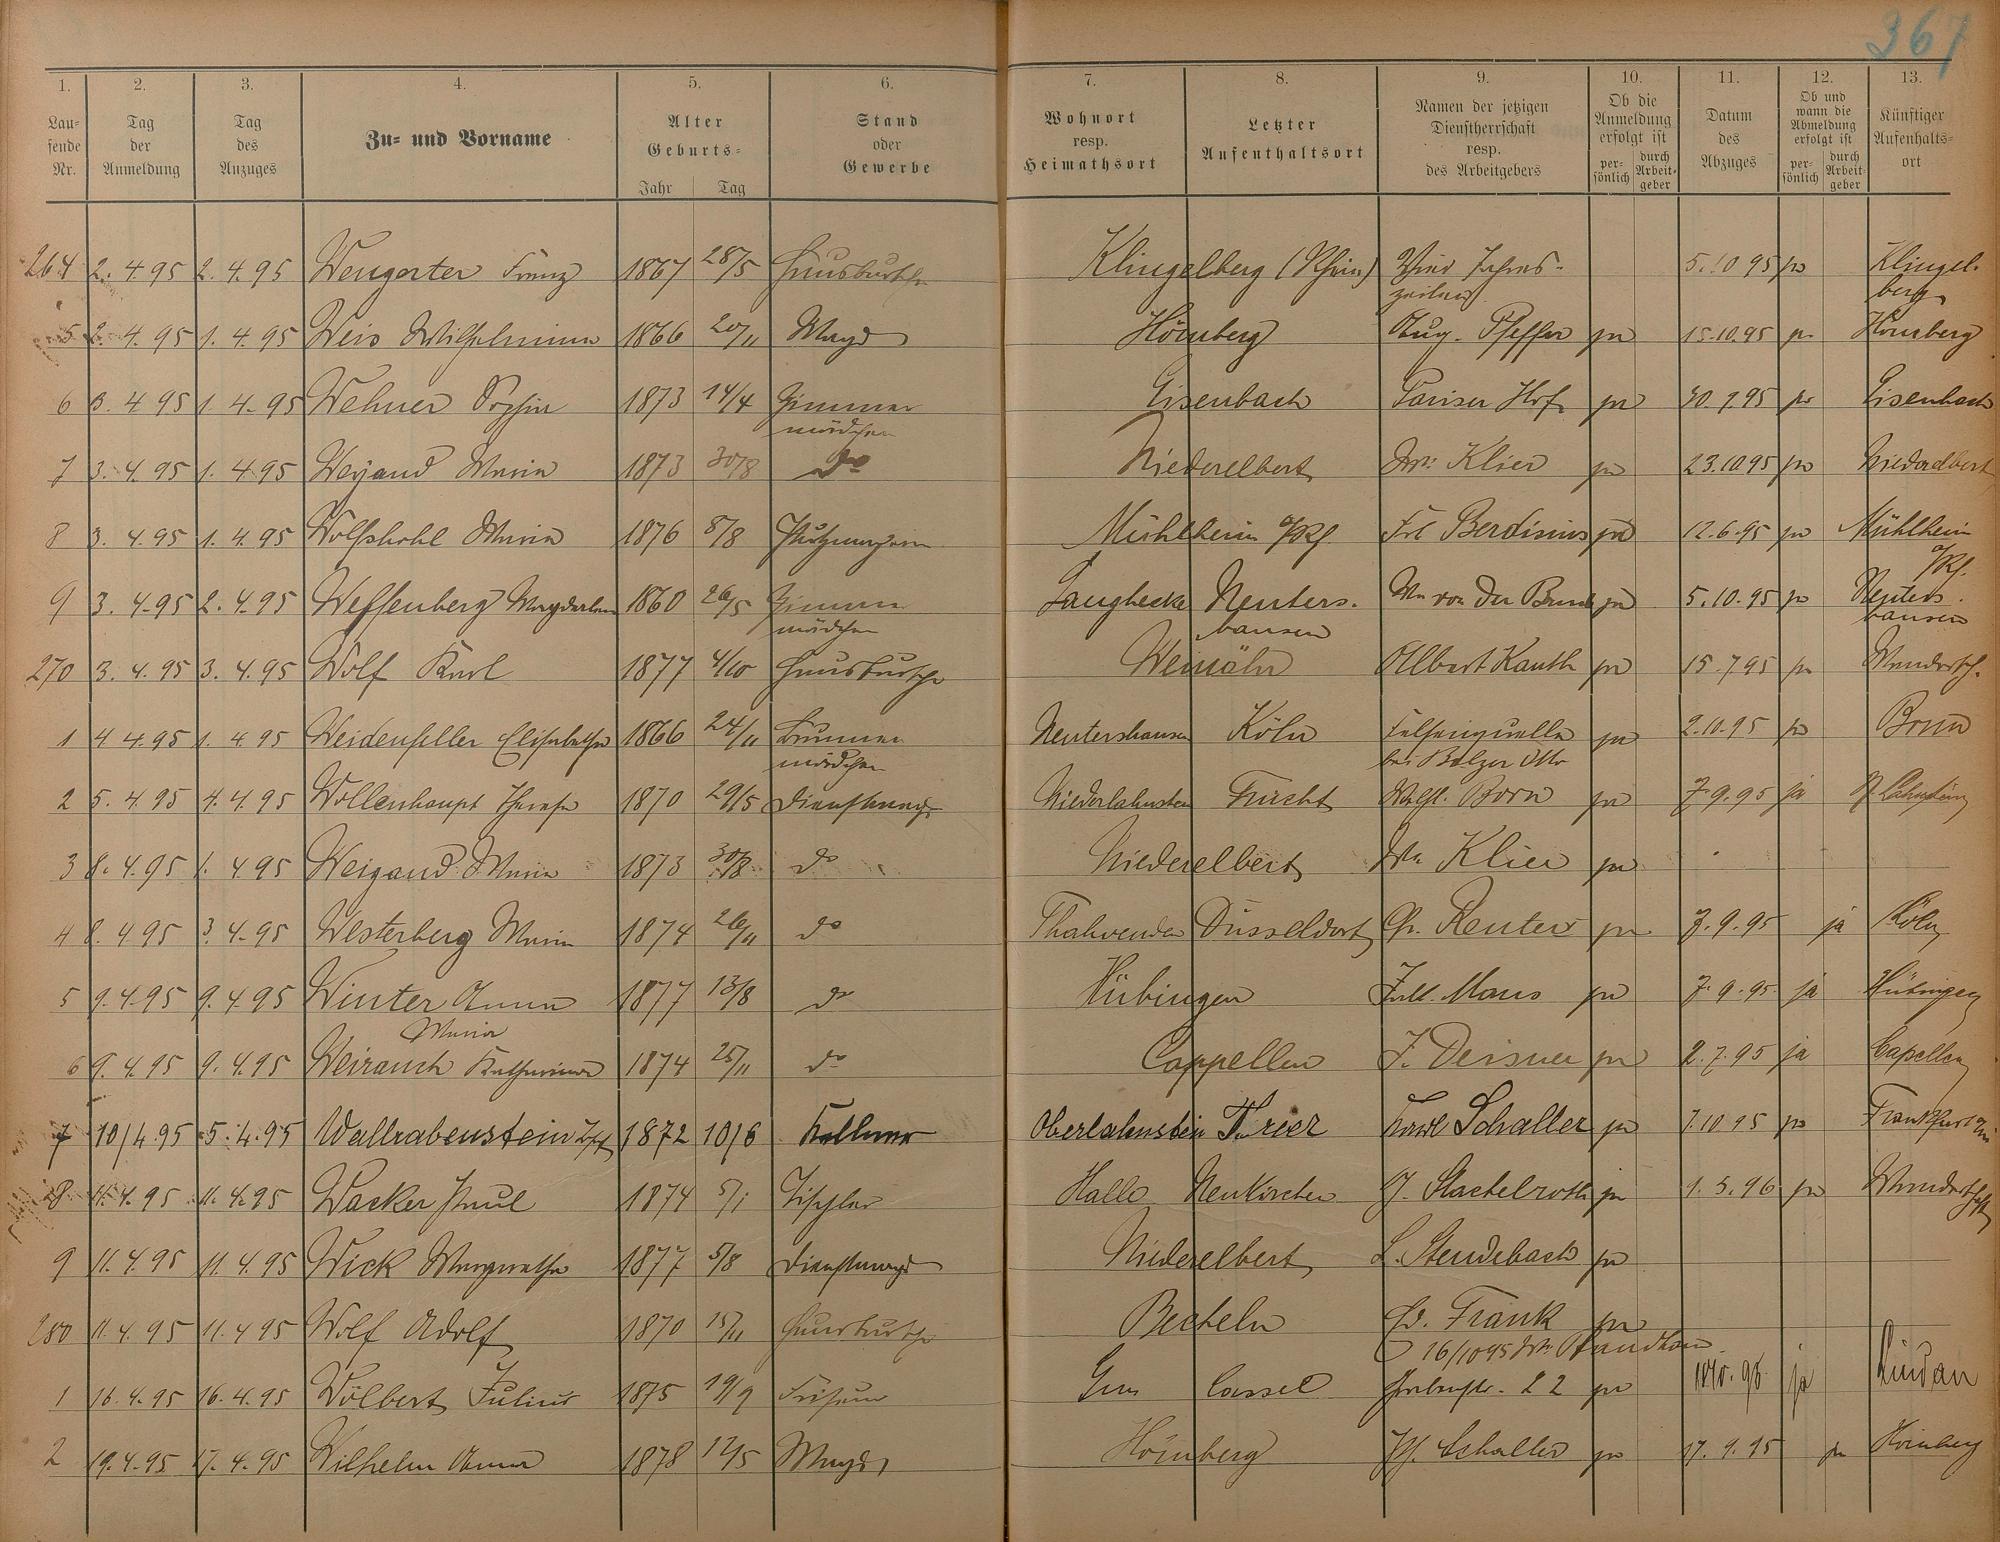 367
1. 2. 3. 4. 5. 6. 7. 8. 9. 10. 11. 12. 13.
Laufende Nr. Tag der Anmeldung Tag des Anzuges Zu- und Vorname Alter Geburts- Jahr Tag Stand oder Gewerbe Wohnort resp. Heimathsort Letzter Aufenthaltsort Namen der jetzigen Dienstherrschaft resp. des Arbeitgebers Ob die Anmeldung erfolgt ist persönlich durch Arbeitgeber Datum des Abzuges Ob und wann die Abmeldung erfolgt ist persönlich durch Arbeitgeber Künftiger Aufenthaltsort
264 2. 4 95 2. 4. 95 Wengerter Franz 1867 28/5 Hausbursche Klingelberg (Rhein) Vier Jahres- 5. 10 95 ja Klingel-
zeiten berg
5 2. 4. 95 1. 4. 95 Weis Wilhelmine 1866 20/11 Magd Hömberg Aug. Pfeffer ja 15.10.95 ja Hömberg
6 3. 4 95 1. 4. 95 Wehner Sophie 1873 14/4 Zimmer Eisenbach Pariser Hof ja 30. 9. 95 ja Eisenbach
mädchen
7 3. 4. 95 1. 4 95 Weyand Maria 1873 30/8 do Niederelbert Ww. Klier ja 23.10 95 ja Niederelbert
8 3. 4. 95 1. 4. 95 Wolfskohl Maria 1876 8/8 Mühlheim a/Rh Frl Berdisius ja 12. 6. 95 ja Mühlheim
a/Rh.
9 3. 4. 95 2. 4. 95 Weffenberg Magdalena 1860 26/5 Zimmer Langhecke Nenters- Ww von der ja 5. 10. 95 ja Nenters-
mädchen hausen hausen
270 3. 4. 95 3. 4. 95 Wolf Karl 1877 4/10 Hausbursche Weinähr Albert Kauth ja 15. 7 95 ja Wanderschf.
1 4 4. 95 1. 4 95 Weidenfeller Elisabetha 1866 24/11 Brunnen Nentershausen Köln Felsenquelle ja 2. 10. 95 ja Bonn
mädchen bei Balzer Otto
2 5. 4. 95 4. 4. 95 Wollenhaupt Therese 1870 29/5 Dienstmagd Niederlahnstein Frücht Wilh. Born ja 7. 9. 95 ja N. Lahnstein
3 8. 4. 95 1. 4 95 Weigand Maria 1873 30/8 do Niederelbert Ww Klier ja
4 8. 4 95 3. 4. 95 Westerberg Maria 1874 26/11 do Düsseldorf Reuter ja 7. 9. 95 ja Köln
5 9. 4 95 9. 4 95 Winter Anna 1877 13/8 do Hübingen Maus ja 7. 9. 95 ja Hübingen
Maria
6 9. 4. 95 9. 4. 95 Weirauch Katharina 1874 25/11 do Cappellen F. Deisner ja 2. 7. 95 ja Capellen
7 10/4. 95 5. 4. 95 Wallrabenstein 1872 10/6 Kellner Oberlahnstein Trier Karl Schaller ja 7. 10 95 ja Frankfurt
8 11. 4. 95 11. 4. 95 Wacker Paul 1874 5/1 Tischler Halle Neukirchen J. Stachelroth ja 1. 5. 96 ja Wanderschaft
9 11. 4. 95 11. 4. 95 Wick Margaretha 1877 5/8 Dienstmagd Niederelbert L. Stendebach ja
280 11. 4. 95 11. 4 95 Wolf Adolf 1870 15/11 Hausbursche Becheln Ed. Frank ja
16/10 95 Ww
1 16. 4. 95 16. 4. 95 Wölbert Julius 1875 19/9 Friseur Ems Cassel 22 ja ja Lindau
2 19. 4. 95 17. 4. 95 Wilhelm Anna 1878 12/5 Magd Hömberg Schaller ja 17. 9. 95 ja Hömberg